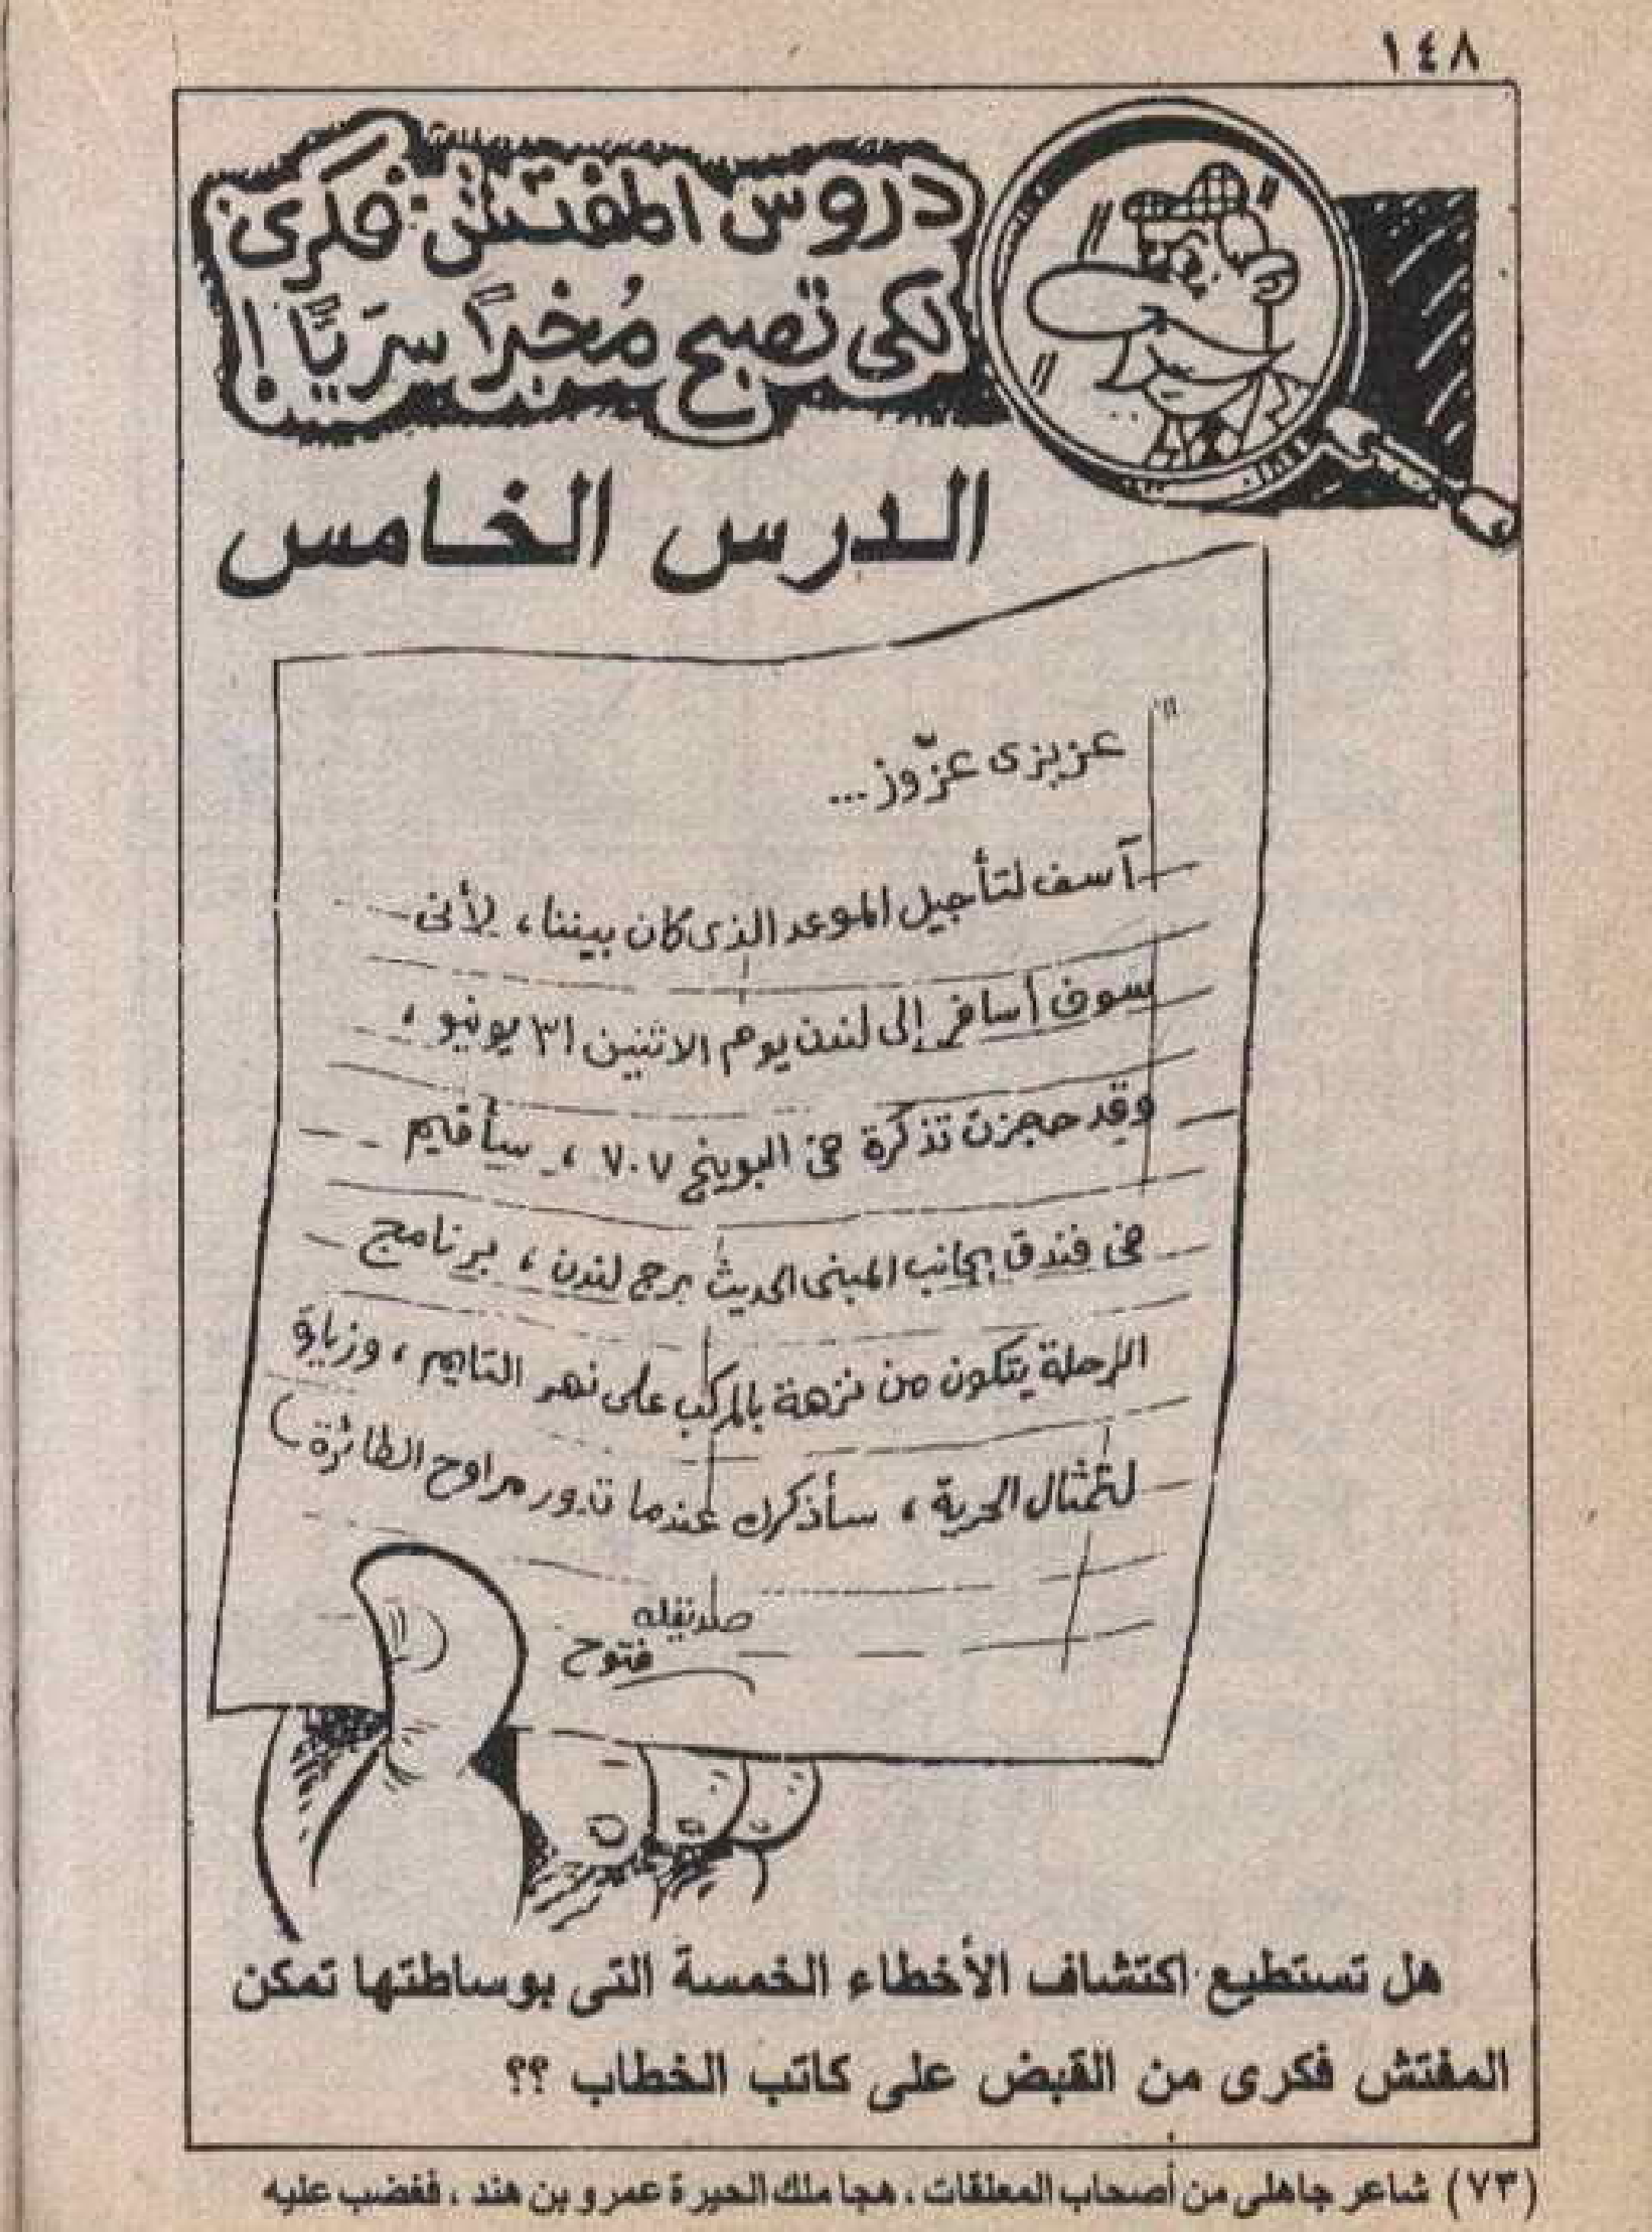 ١٤٨
دروس المفتش فكرى
لكى تصبح مُخبرًا سرَيًّا!
الدرس الخامس
عزيزى عزّوز...
آسف لتأجيل الموعد الذى كان بيننا، لأنى
سوف أسافر إلى لندن يوم الاثنين ٣١ يونيو،
وقد حجزت تذكرة فى البوينج ٧٠٧، سأقيم
فى فندق بجانب المبنى الحديث برج لندن، برنامج
الرحلة يتكون من نزهة بالمركب على نهر التايم، وزيارة
لتمثال الحرية، سأذكرك عندما تدور مراوح الطائرة
صديقك
فتوح
هل تستطيع اكتشاف الأخطاء الخمسة التى بوساطتها تمكن
المفتش فكرى من القبض على كاتب الخطاب ؟؟
(٧٣) شاعر جاهلى من أصحاب المعلقات، هجا ملك الحيرة عمرو بن هند، فغضب عليه